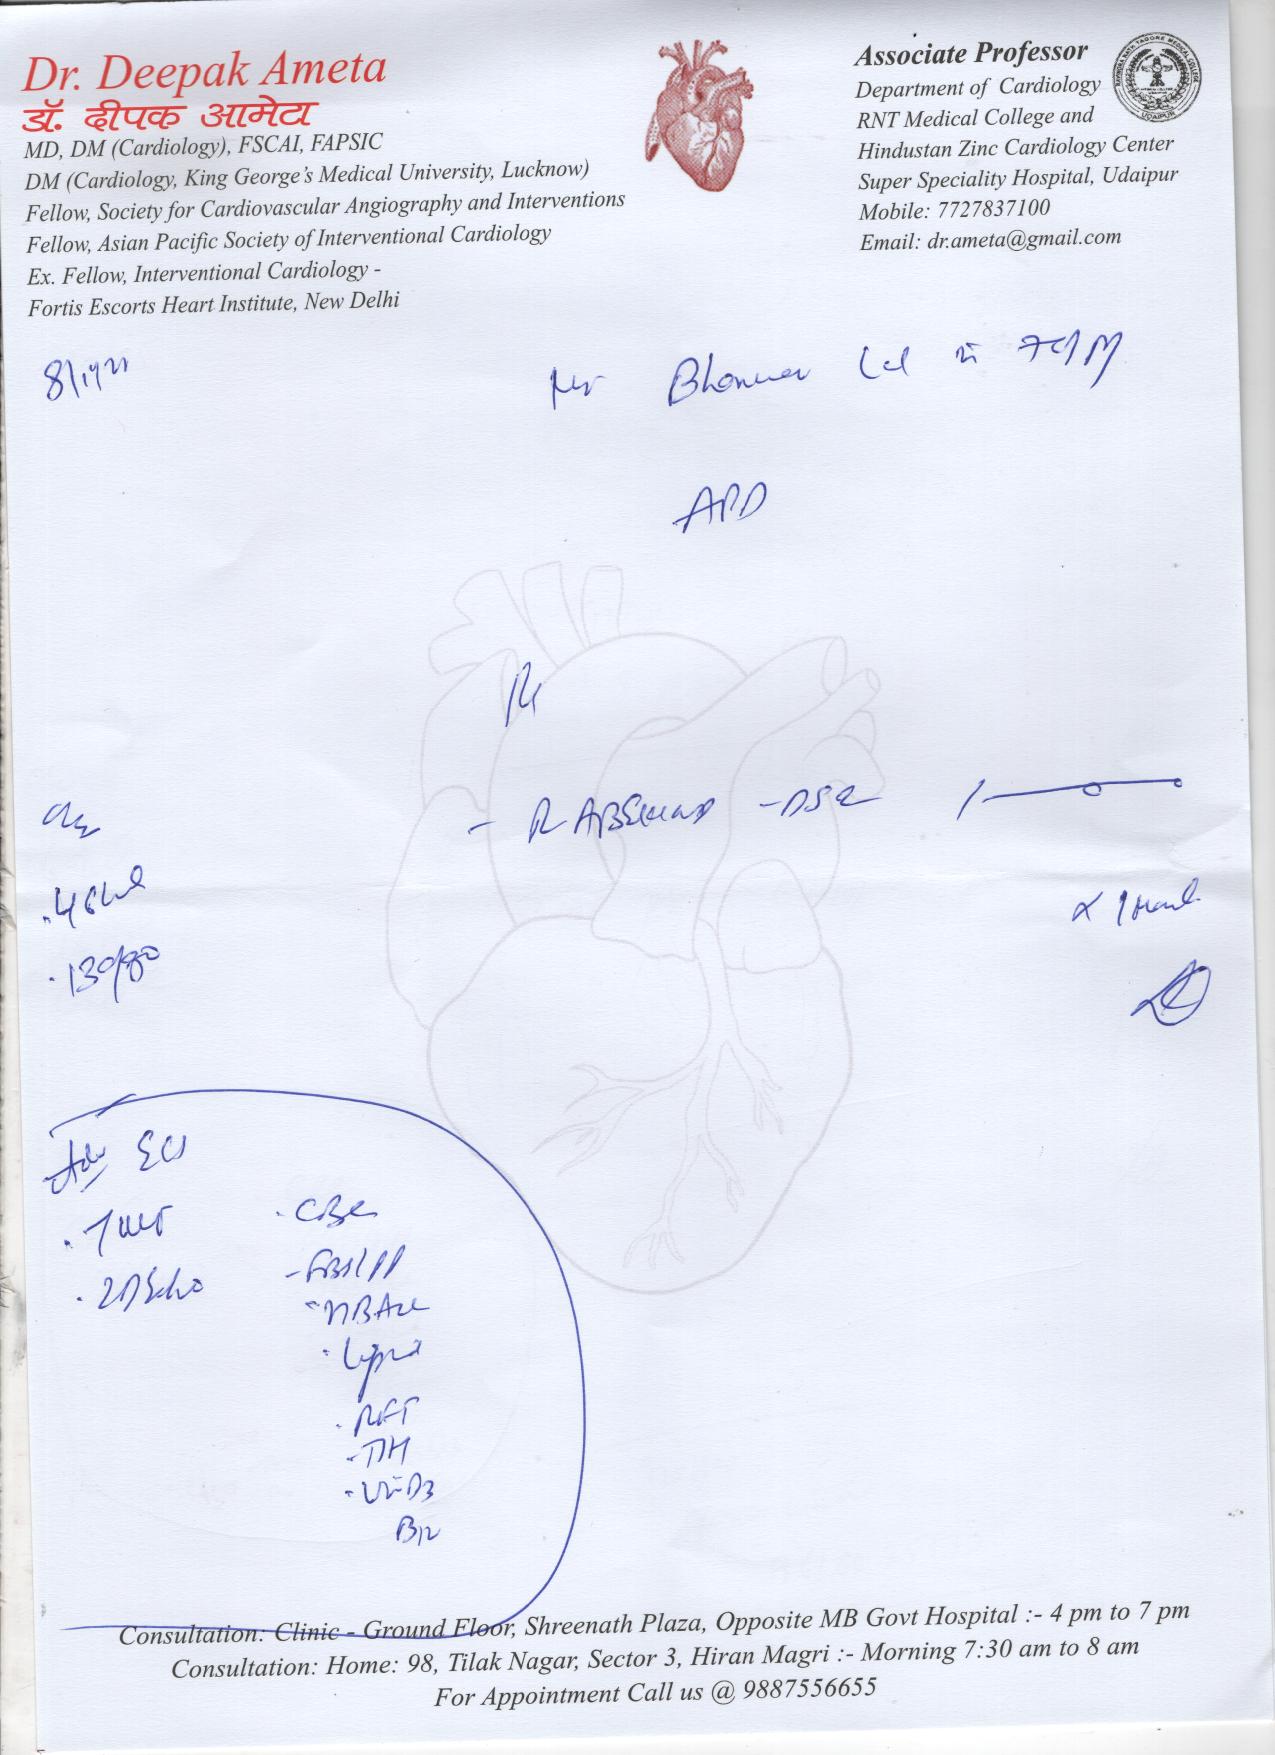 Dr. Deepak Ameta
डॉ. दीपक आमेटा
MD, DM (Cardiology), FSCAI, FAPSIC
DM (Cardiology, King George's Medical University, Lucknow)
Fellow, Society for Cardiovascular Angiography and Interventions
Fellow, Asian Pacific Society of Interventional Cardiology
Ex. Fellow, Interventional Cardiology -
Fortis Escorts Heart Institute, New Delhi
Associate Professor
Department of Cardiology
RNT Medical College and
Hindustan Zinc Cardiology Center
Super Speciality Hospital, Udaipur
Mobile: 7727837100
Email: dr.ameta@gmail.com
RABINDRA NATH TAGORE MEDICAL COLLEGE
UDAIPUR
Mr Lal
APD
Rx
- DSR
x 1 month
. 130/80
Adv
. TMT
. 2D Echo
. CBC
. Lipid
. RFT
B12
Consultation: Clinic - Ground Floor, Shreenath Plaza, Opposite MB Govt Hospital :- 4 pm to 7 pm
Consultation: Home: 98, Tilak Nagar, Sector 3, Hiran Magri :- Morning 7:30 am to 8 am
For Appointment Call us @ 9887556655